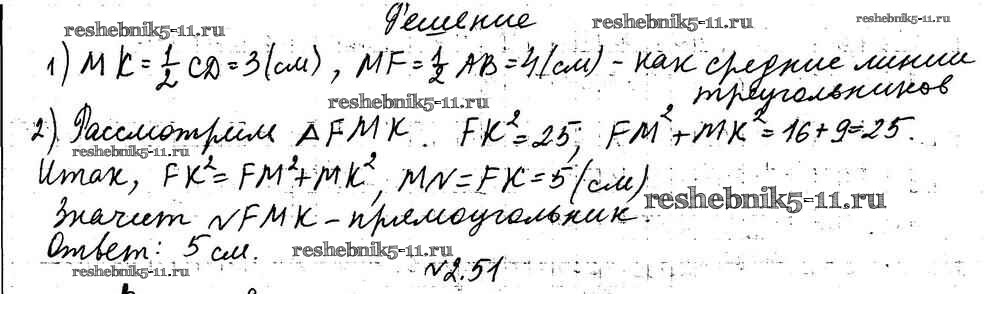 Решение
reshebnik5-11.ru reshebnik5-11.ru reshebnik5-11.ru
1) MK = 1/2 CD = 3 (см), MF = 1/2 AB = 4 (см) - как средние линии
треугольников
reshebnik5-11.ru
2) Рассмотрим △FMK. FK² = 25; FM² + MK² = 16 + 9 = 25.
reshebnik5-11.ru
Итак, FK² = FM² + MK², MN = FK = 5 (см)
reshebnik5-11.ru
Значит NFMK - прямоугольник.
Ответ: 5 см. reshebnik5-11.ru
reshebnik5-11.ru
№2.51